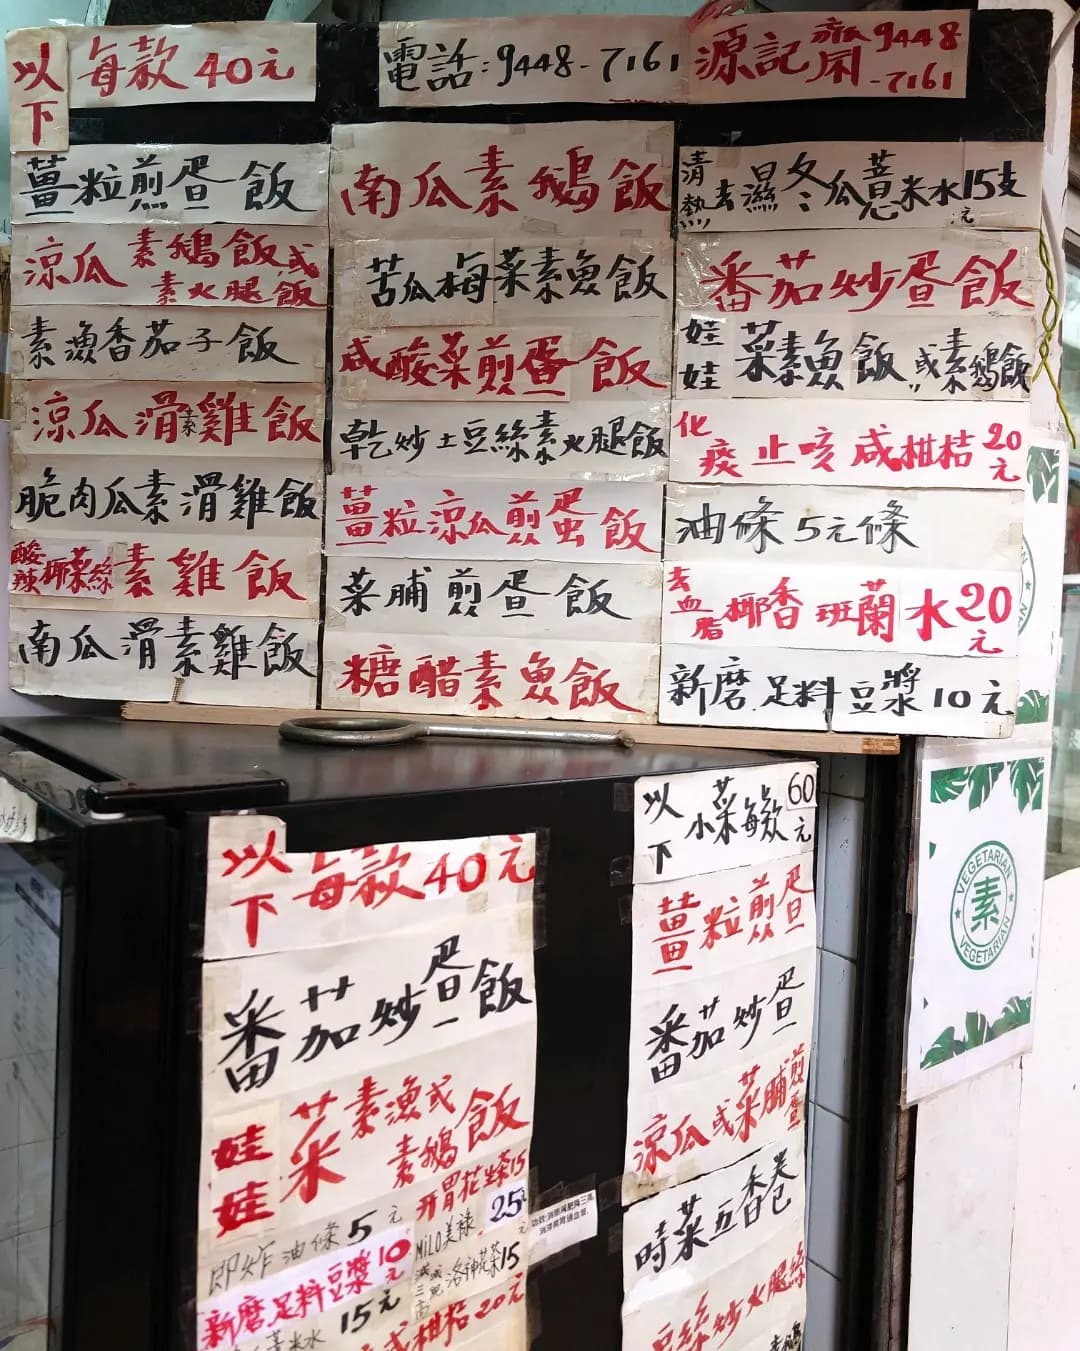 以下 每款40元
電話:9448-7161
源記齋 9448-7161
薑粒煎蛋飯
涼瓜素鵝飯或素火腿飯
素漁香茄子飯
涼瓜滑素雞飯
脆肉瓜素滑雞飯
酸辣椰菜絲素雞飯
南瓜滑素雞飯
南瓜素鵝飯
苦瓜梅菜素魚飯
咸酸菜煎蛋飯
乾炒土豆絲素火腿飯
薑粒涼瓜煎蛋飯
菜脯煎蛋飯
糖醋素魚飯
清熱去濕冬瓜薏米水15元支
番茄炒蛋飯
娃娃菜素魚飯或素鵝飯
化痰止咳咸柑桔20元
油條5元條
去血脂椰香班蘭水20元
新磨足料豆漿10元
以下每款40元
番茄炒蛋飯
娃娃菜素漁或素鵝飯
開胃花茶15
即炸油條5元
MILO美祿25元
新磨足料豆漿10元
減三高減肥洛神花茶15
米水15元
咸柑桔20元
以下小菜每款60元
薑粒煎蛋
番茄炒蛋
涼瓜或菜脯煎蛋
時菜五香卷
豆絲炒火腿絲
VEGETARIAN
素
VEGETARIAN